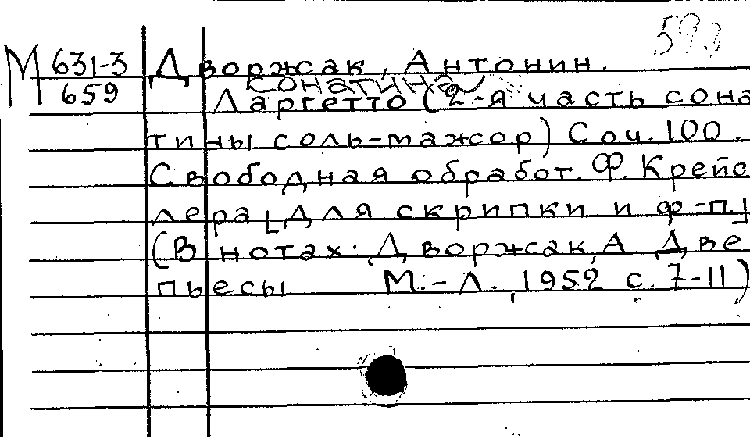 593
М 631-3 Дворжак, Антонин.
659 сонатина
Ларгетто (2-я часть сона
тины соль-мажор) Соч. 100.
Свободная обработ. Ф. Крейс
лера, для скрипки и ф-п]
(В нотах: Дворжак, А Две
пьесы М.-Л., 1952 с. 7-11)